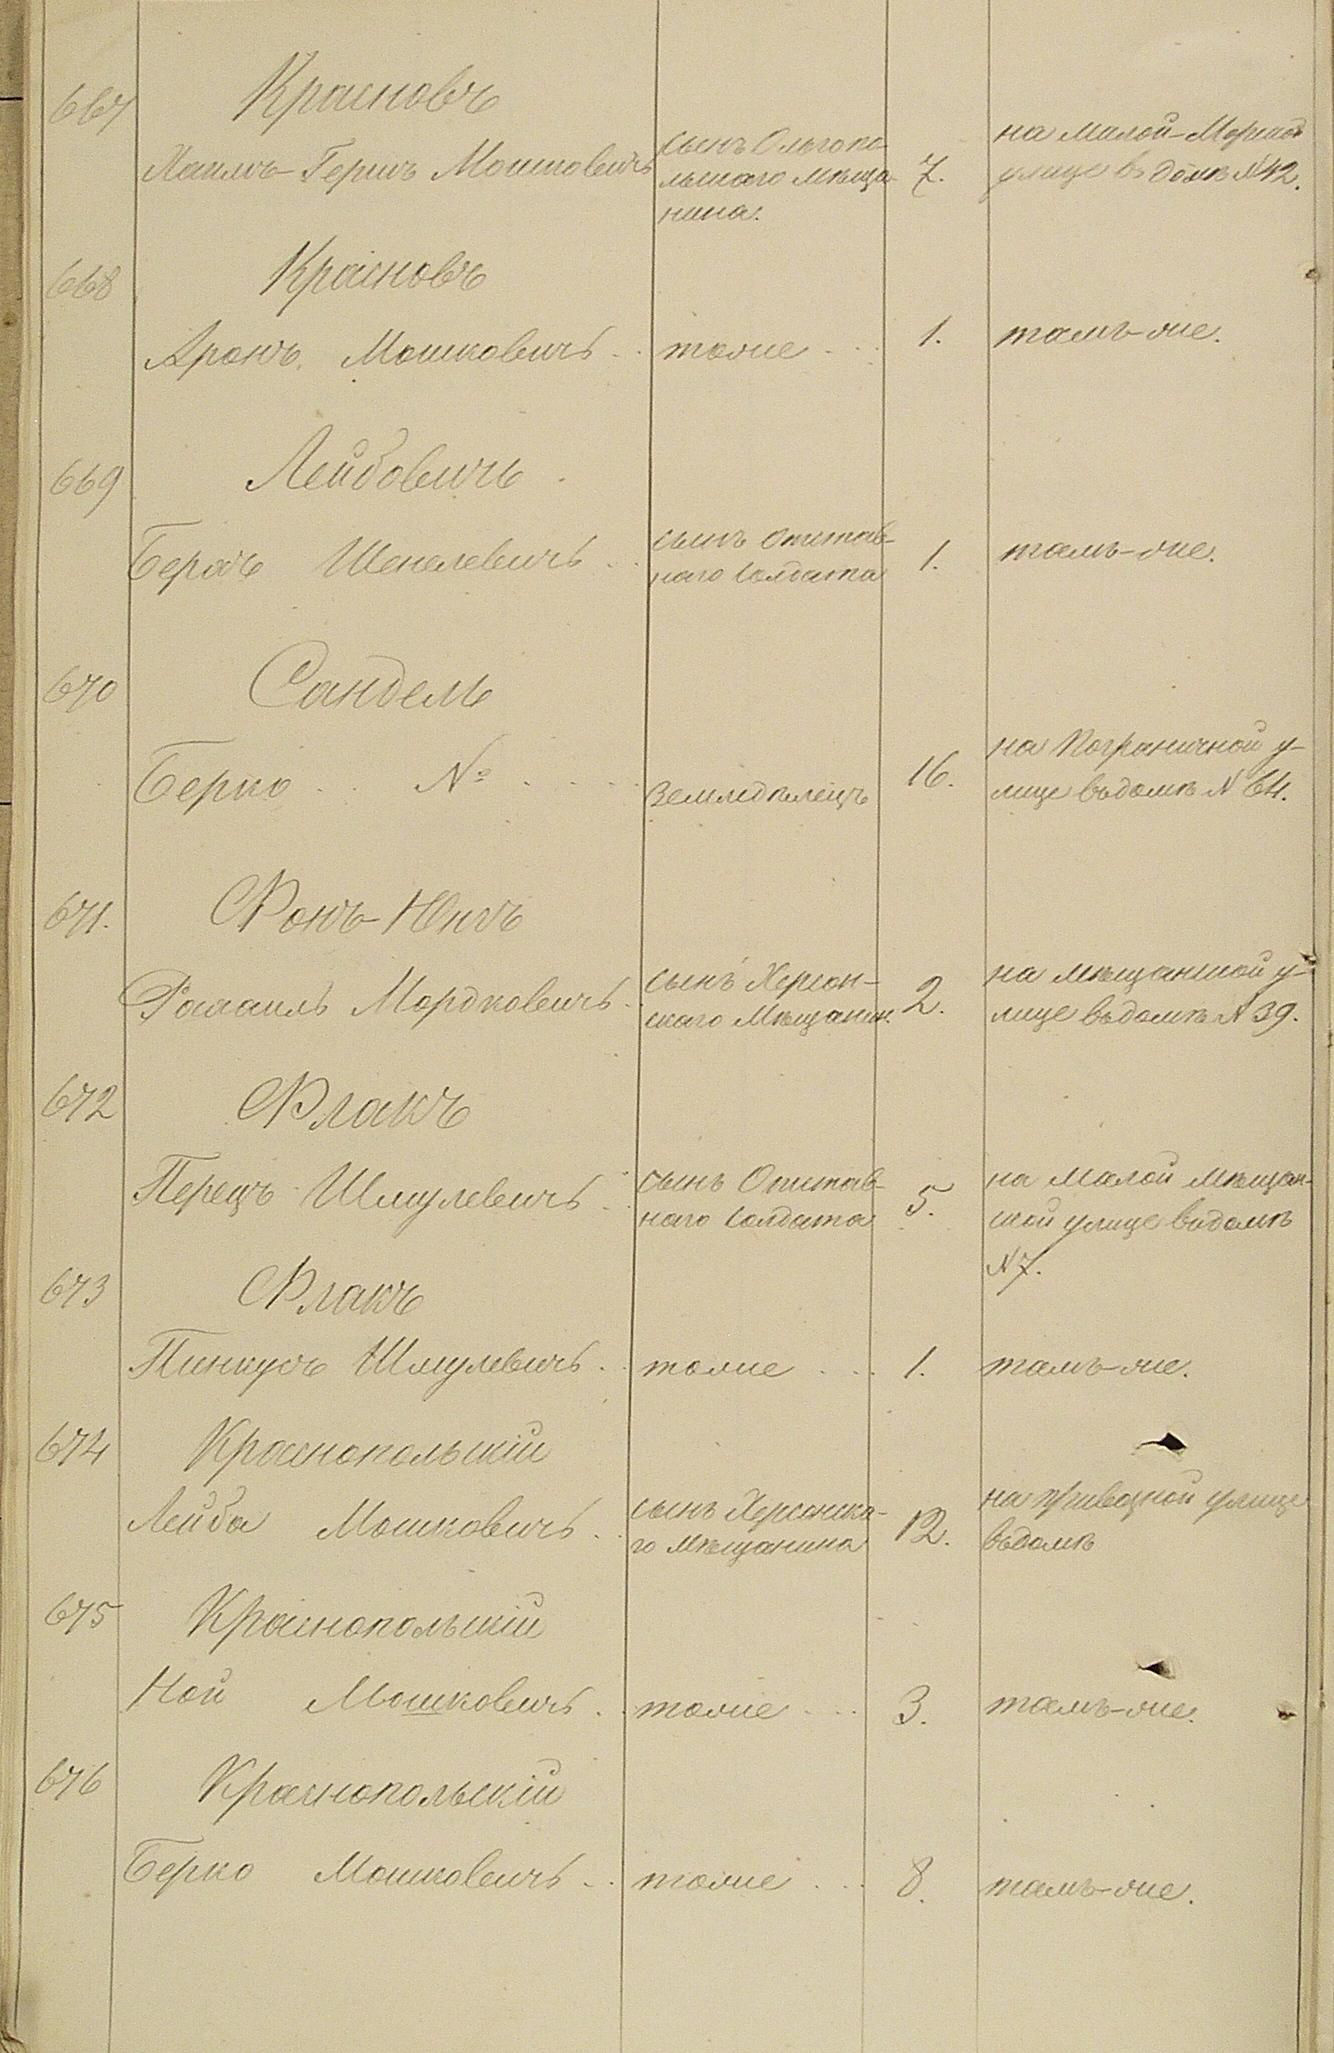 667 Красновъ
Хаимъ-Гершъ Мошковичъ
сынъ Ольгопо-
льскаго мѣща-
нина.
7.
на Малой-Морской
улице въ домѣ № 42.
668 Красновъ
Аронъ Мошковичъ . . тоже . . . 1. тамъ-же.
669 Лейбовичъ
Берахъ Шепелевичъ . .
сынъ отстав-
наго солдата
1. тамъ-же.
670 Сандель
Берко . . № . . . . Земледѣлецъ 16.
на Пограничной у-
лице въ домѣ № 64.
671. Фонъ-Юнгъ
Рафаилъ Мордковичъ .
сынъ Херсон-
скаго Мѣщанин.
2.
на мѣщанской у-
лице въ домѣ № 39.
672 Флакъ
Перецъ Шмулевичъ . .
сынъ Отстав-
наго солдата
5.
на Малой мѣщан-
ской улице въ домѣ
№ 7.
673 Флакъ
Пинкусъ Шмулевичъ . . тоже . . . 1. тамъ-же.
674 Краснопольскій
Лейба Мошковичъ . .
сынъ Херсонска-
го мѣщанина
12.
на улице
въ домѣ
675 Краснопольскій
Ной Мошковичъ . . тоже . . . 3. тамъ-же.
676 Краснопольскій
Берко Мошковичъ . . тоже . . . 8. тамъ-же.